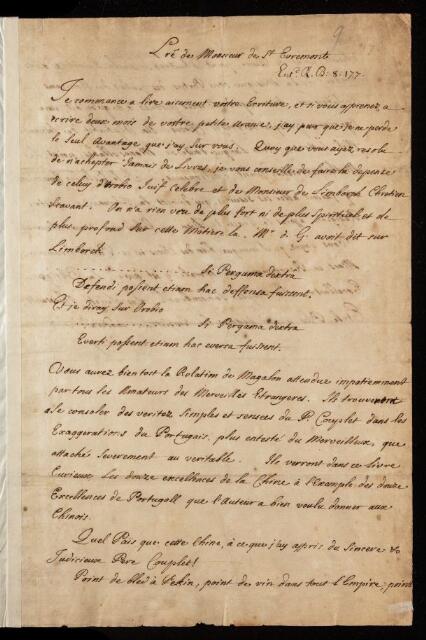 9
Lre de Monsieur de St Evremont
Ent. R. B: 8: 177.
Je commance a lire aisement vostre Ecriture, et si vous apprenez a
ecrire deux mois de vostre petite Uranie, j'ay peur que je ne perde
le seul Avantage que j'ay sur vous. Quoy que vous ayez resolu
de n'achepter jamais de Livres, je vous conseille de faire la depense
de celuy d'Orobio Juif Celebre et de Monsieur de Limborch Chretien
scavant. On n'a rien veu de plus fort ni de plus spirituel et de
plus profond sur cette Matiere la. Mr de G. avoit dit sur
Limborch
Si Pergama dextra
Defendi possent etiam hac deffensa fuissent.
Et je diray sur Orobio
Si Pergama dextra
Everti possent etiam hac eversa fuissent.
Vous aurez bientost la Relation du Magalon attendue impatiemment
par tous les Amateurs des Merveilles Etrangeres. Ils trouveront
a se consoler des veritez simples et sensees du P. Couplet dans les
Exaggerations du Portugais, plus entesté du Merveilleux, que
attaché severement au veritable. Ils verront dans ce Livre
Curieux les douze excellences de la Chine à l'Exemple des douze
Excellences de Portugall que l'Auteur a bien voulu donner aux
Chinois.
Quel Païs que cette Chine, à ce que j'ay appris du Sincere &
Judicieux Pere Couplet!
Point de bled à Pekin, point de vin dans tout l'Empire, point